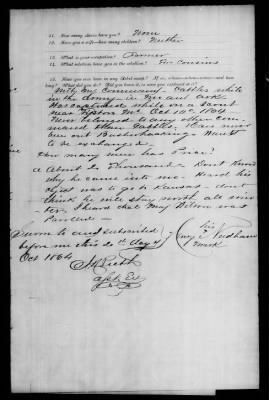 11. How many slaves have you? None
12. Have you a wife—how many children? Neither
13. What is your occupation? Farmer
14. What relatives have you in the rebellion? Five Cousins
15. Have you ever been in any Rebel camp? If so, whose—when—where—and how
long? What did you do? Did you leave it, or were you captured at it?
With my Command, while
in the Army in Mo. and Ark.
Was captured while on a scout
near Mo. Oct 10th 1864
Never belonged to any other com-
mand than . Was never
out Bushwhacking. Want
to be exchanged.
How many men has Price?
A About 20 Thousand. Dont know
why he came into Mo. Heard his
object was to go to Kansas. dont
think he will stay north all win-
ter. I heard that Maj Wilson was
Paroled—
Sworn to and subscribed
before me this 20th day of
Oct 1864
his
mark